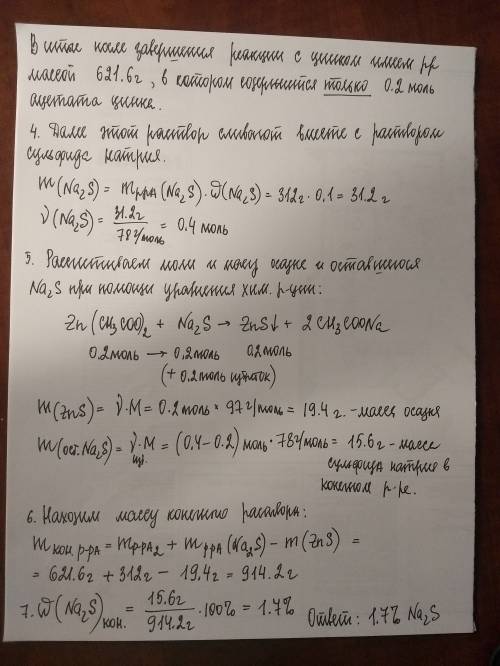 В итоге после завершения реакции с цинком имеем р-р
массой 621.6г, в котором содержится только 0.2 моль
ацетата цинка.
4. Далее этот раствор сливают вместе с раствором
сульфида натрия.
m(Na₂S) = mр-ра(Na₂S)·ω(Na₂S) = 312г·0,1 = 31.2 г
ν(Na₂S) = 31.2г / 78г/моль = 0.4 моль
5. Рассчитываем моли и массу осадка и оставшегося
Na₂S при помощи уравнения хим. р-ции:
Zn(CH₃COO)₂ + Na₂S → ZnS↓ + 2CH₃COONa
0.2моль → 0,2моль 0.2моль
(+ 0.2моль избыток)
m(ZnS) = ν·M = 0.2моль · 97г/моль = 19.4 г. - масса осадка
m(ост. Na₂S) = νизб.·M = (0.4-0.2) моль · 78г/моль = 15.6г - масса
сульфида натрия в
конечном р-ре.
6. Находим массу конечного раствора:
mкон. р-ра = mр-ра₂ + mр-ра(Na₂S) - m(ZnS) =
= 621.6г + 312г - 19.4г = 914.2г
7. ω(Na₂S)кон. = 15.6г / 914.2г · 100% = 1.7% Ответ: 1.7% Na₂S